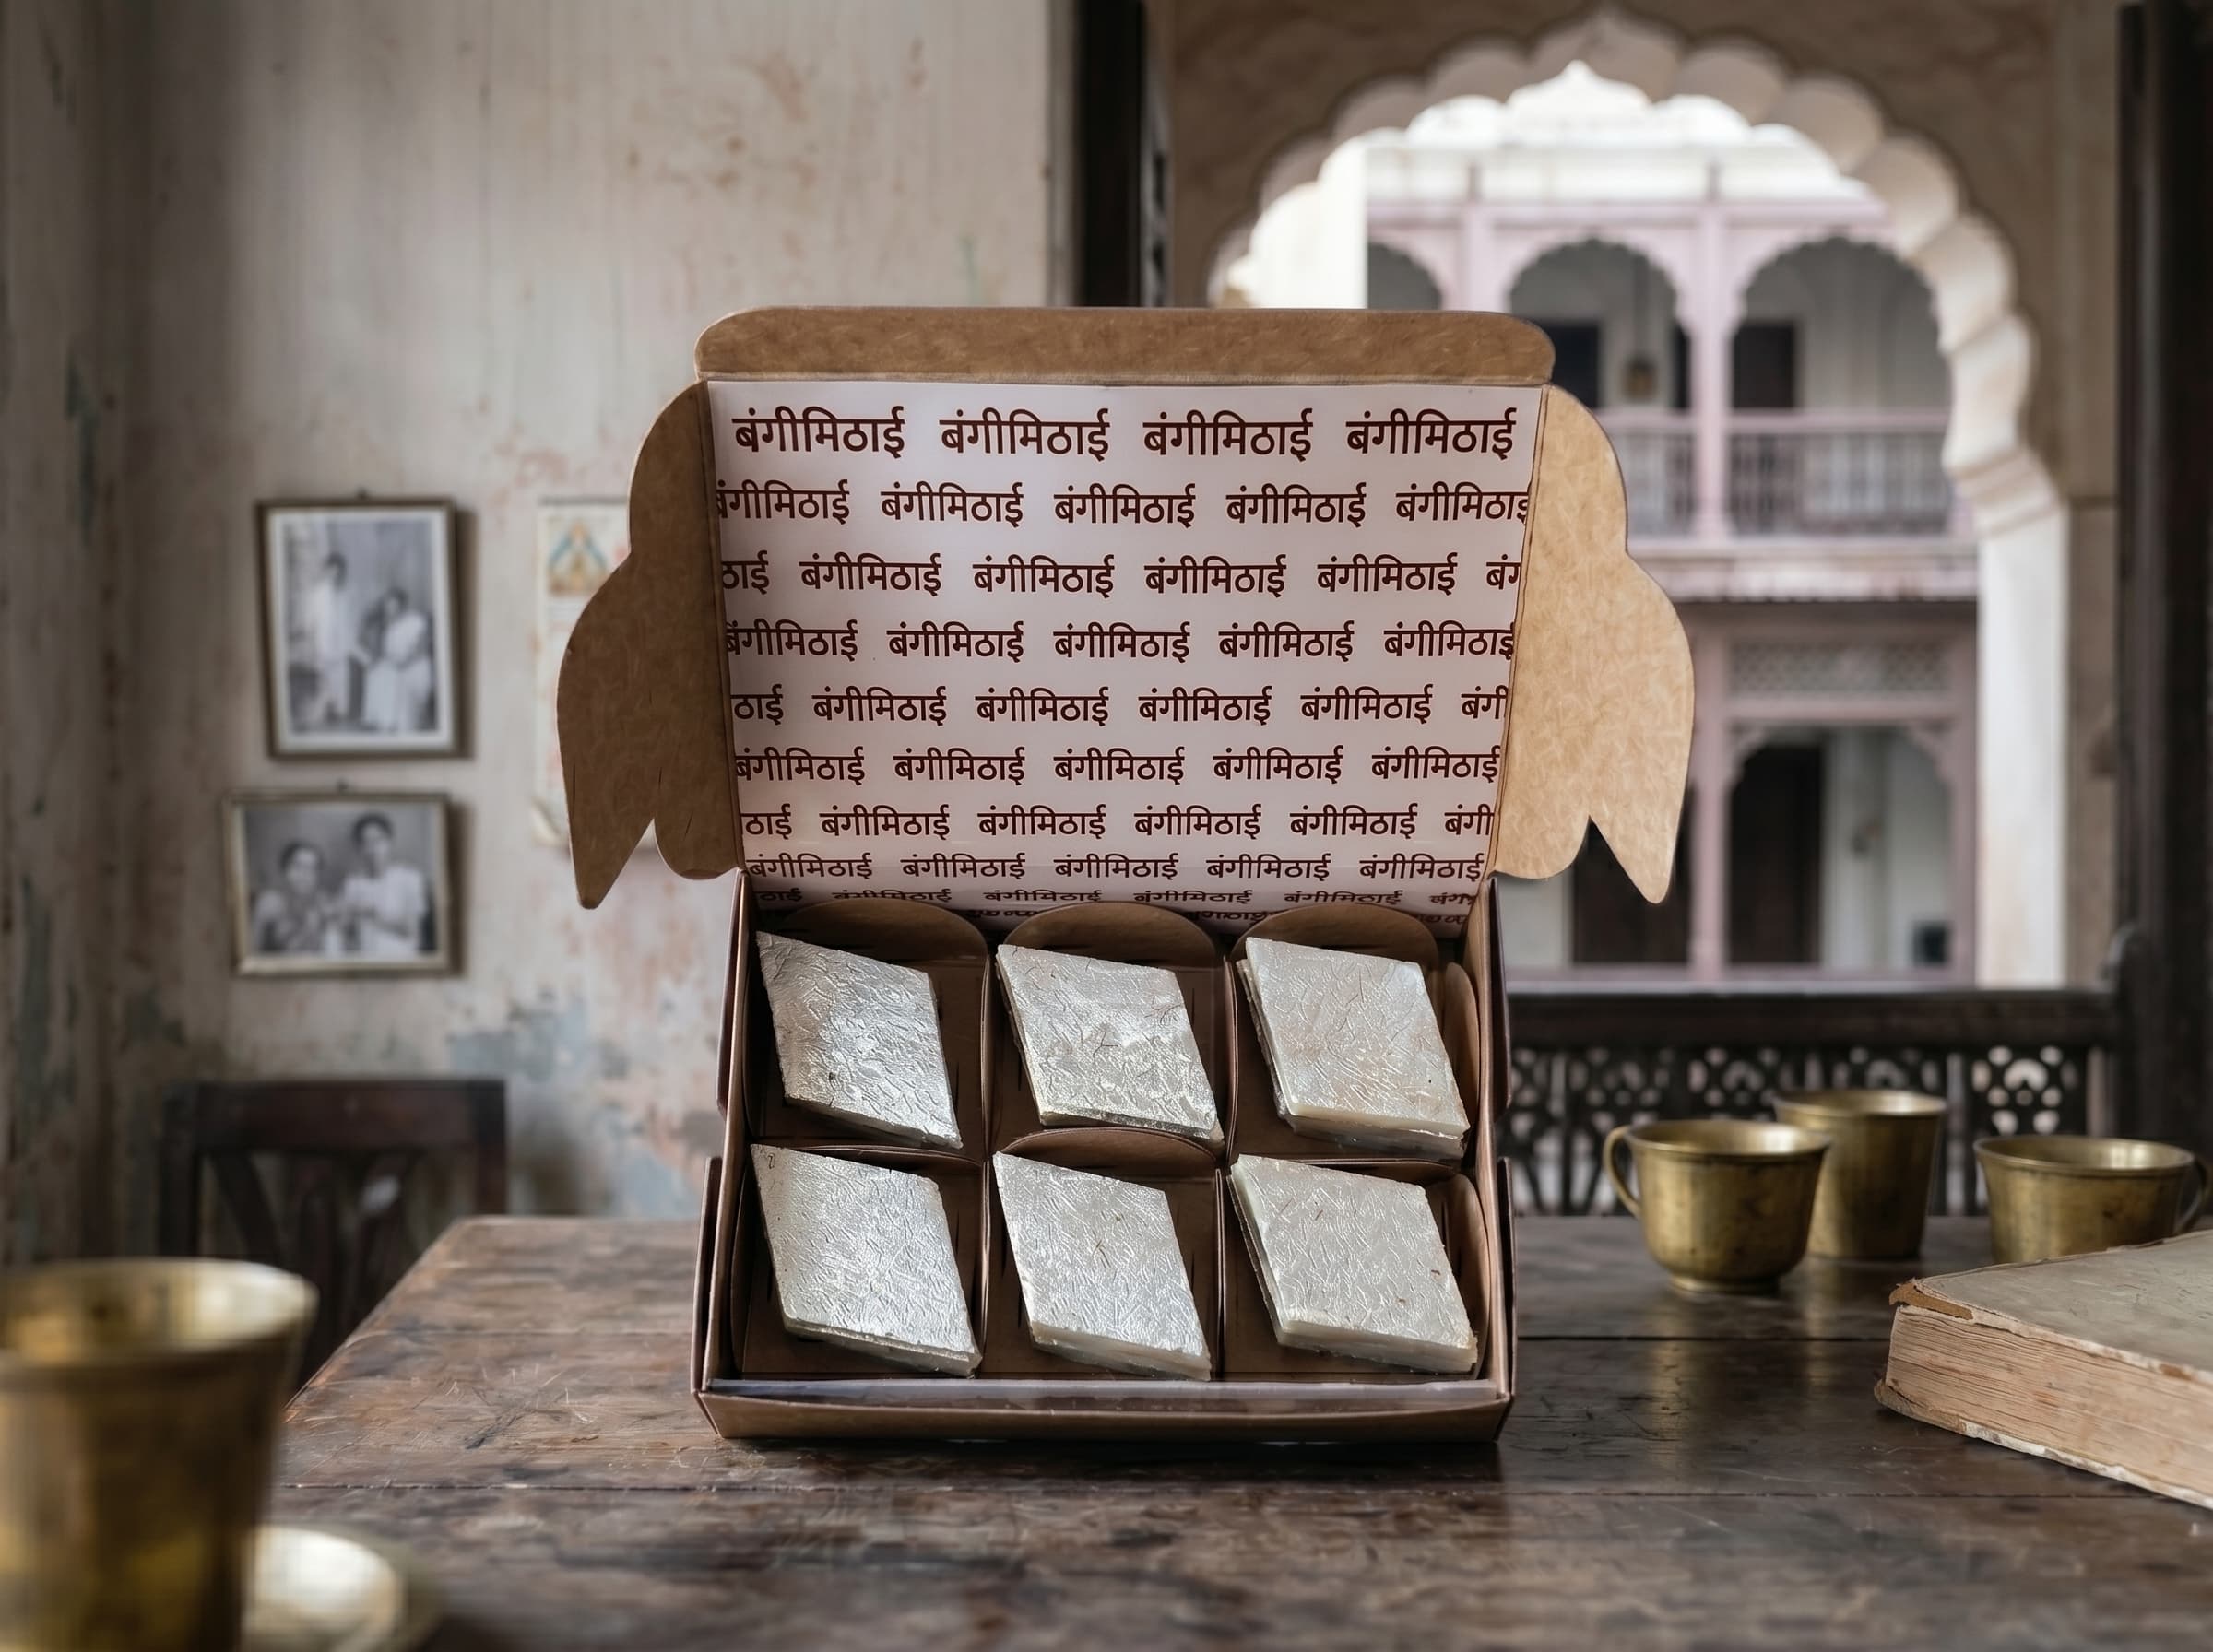 बंगीमिठाई बंगीमिठाई बंगीमिठाई बंगीमिठाई
बंगीमिठाई बंगीमिठाई बंगीमिठाई बंगीमिठाई बंगीमिठाई
ठाई बंगीमिठाई बंगीमिठाई बंगीमिठाई बंगीमिठाई बंग
बंगीमिठाई बंगीमिठाई बंगीमिठाई बंगीमिठाई बंगीमिठाई
ठाई बंगीमिठाई बंगीमिठाई बंगीमिठाई बंगीमिठाई बंगी
बंगीमिठाई बंगीमिठाई बंगीमिठाई बंगीमिठाई बंगीमिठाई
ठाई बंगीमिठाई बंगीमिठाई बंगीमिठाई बंगीमिठाई बंगी
बंगीमिठाई बंगीमिठाई बंगीमिठाई बंगीमिठाई बंगीमिठाई
ठाई बंगीमिठाई बंगीमिठाई बंगीमिठाई बंगीमिठाई